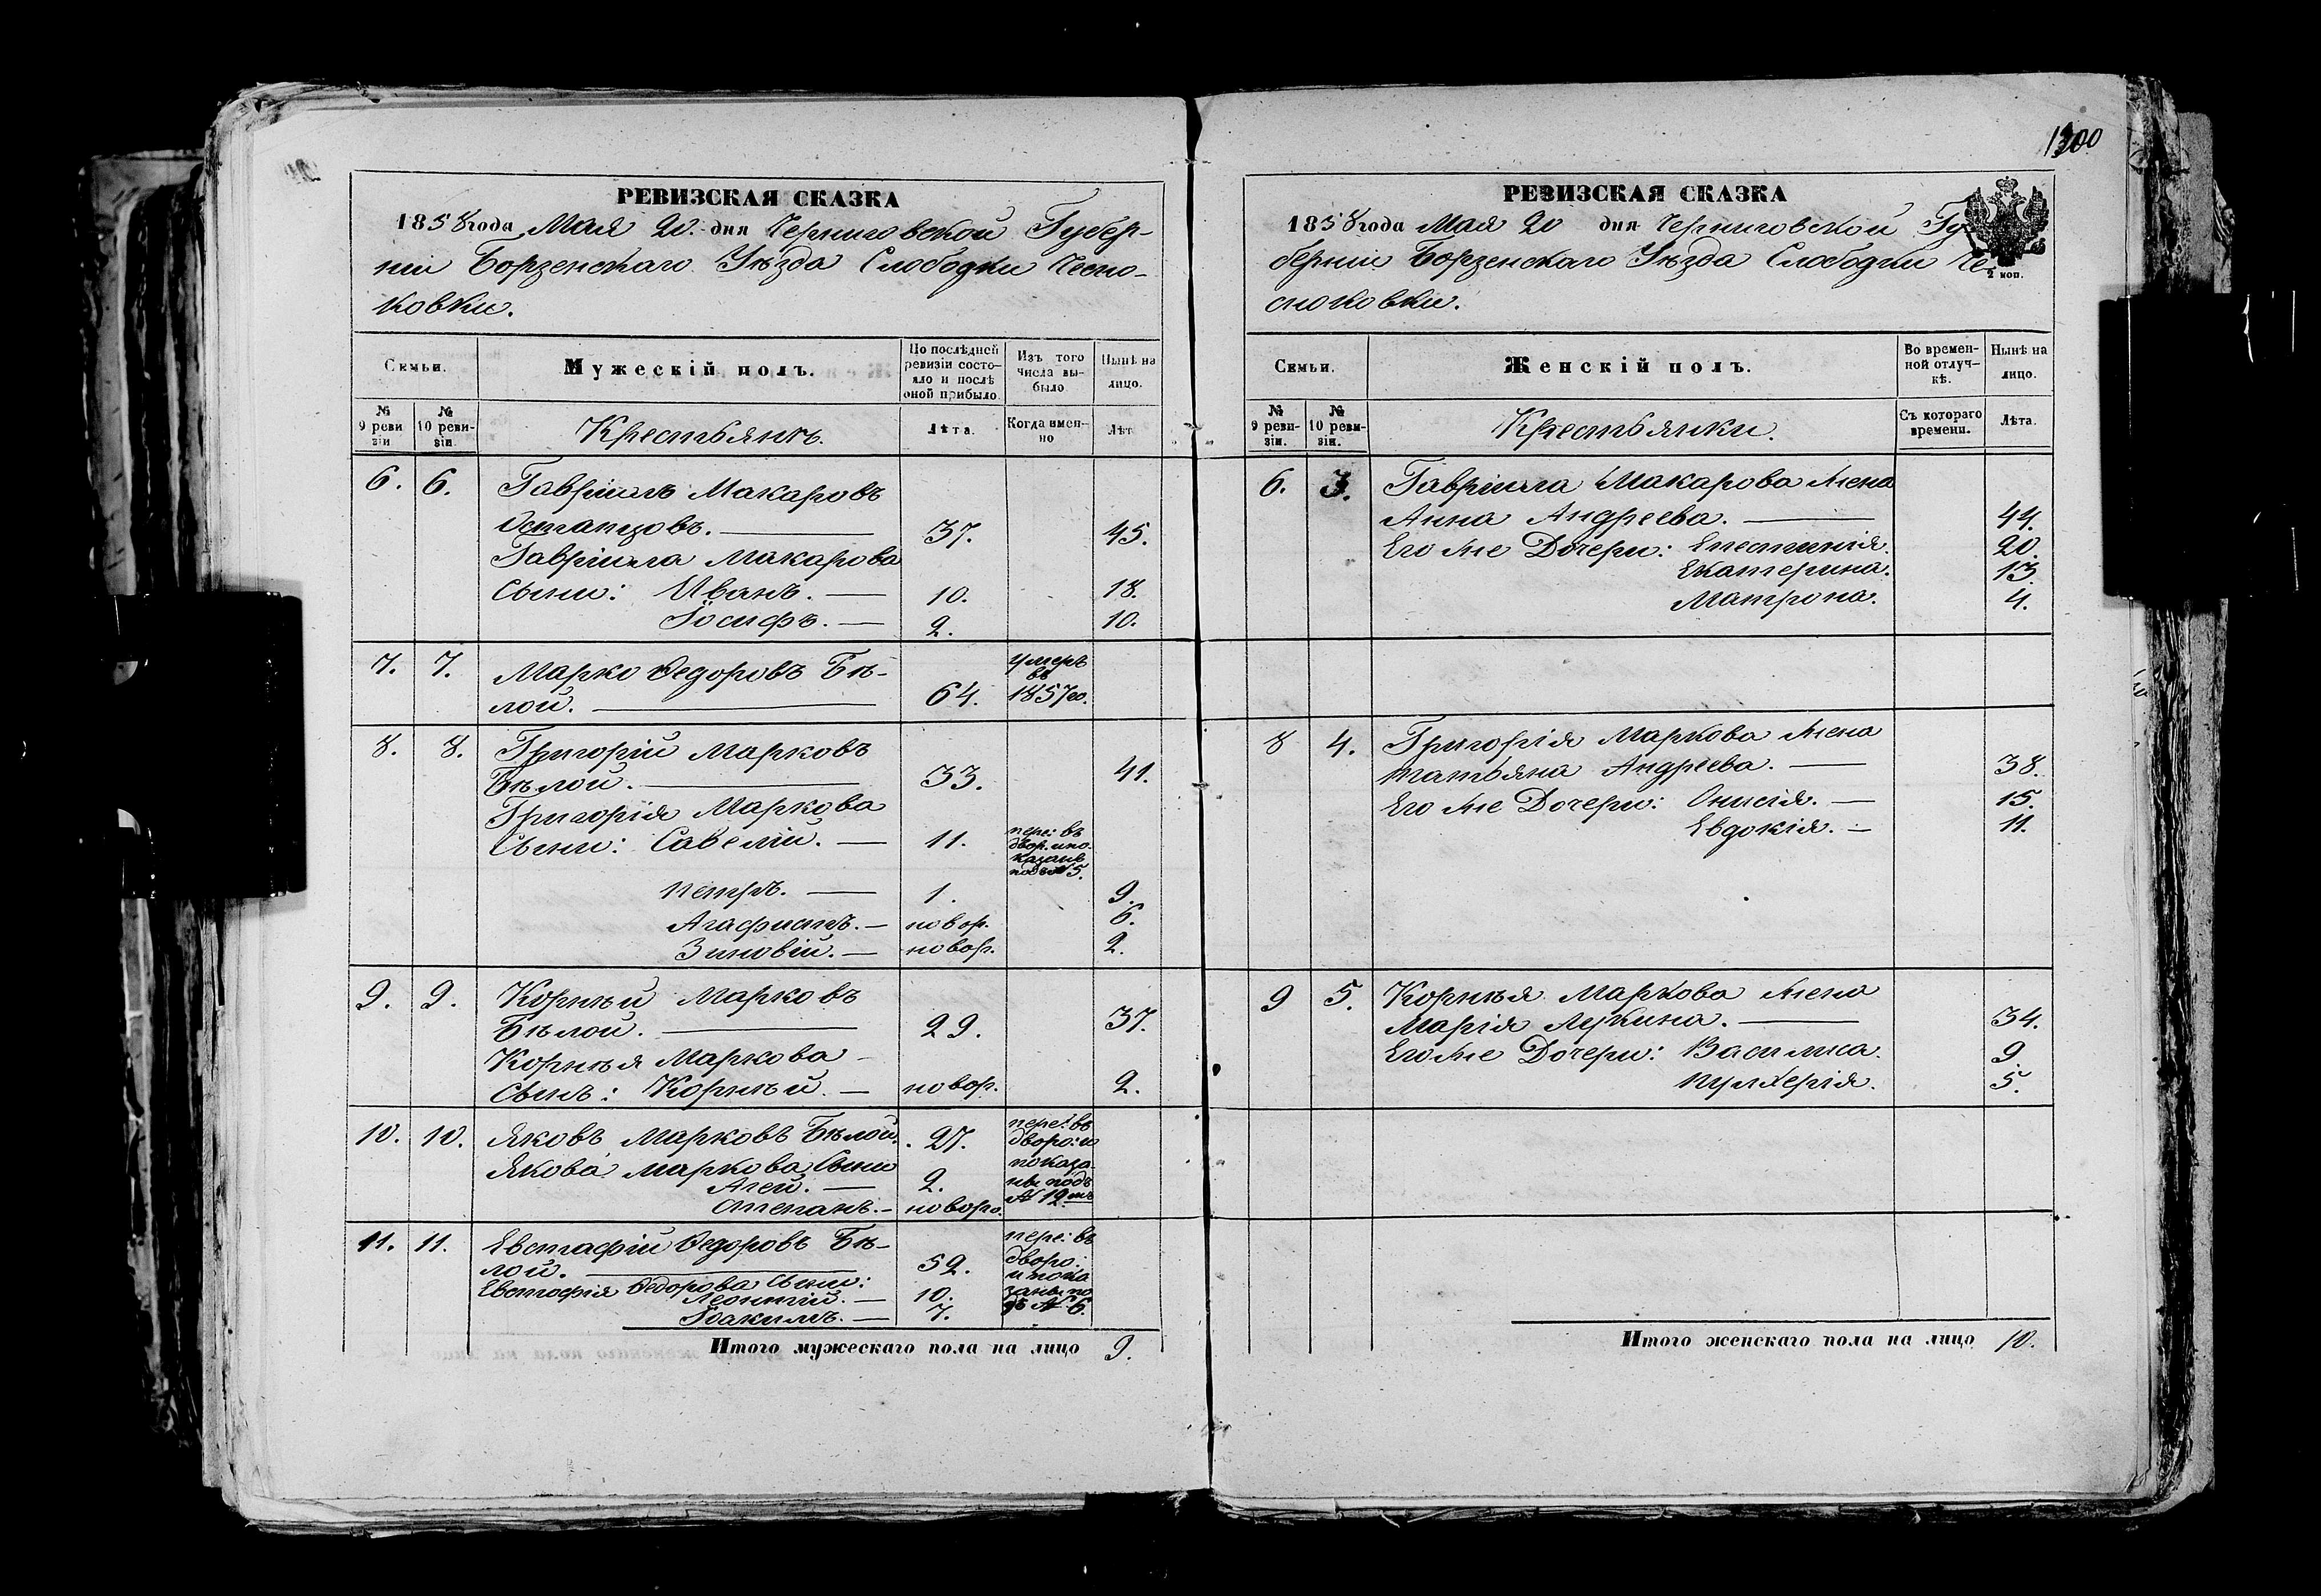 РЕВИЗСКАЯ СКАЗКА
1858 года Мая 20. дня Черниговской Губер-
ніи Борзенскаго Уѣзда Слободки Чесно-
ковки.
Семьи.
Мужескій полъ.
По послѣдней ревизіи состояло и послѣ оной прибыло.
Изъ того числа выбыло
Нынѣ на лицо.
№ 9 реви зіи
№ 10 реви-зіи.
Крестьянъ.
Лѣта.
Когда имен-но
Лѣт
6. 6. Гавріилъ Макаровъ
Остапцовъ. 37. 45.
Гавріила Макарова
Сыни: Иванъ. 10. 18.
Іосифъ. 2. 10.
7. 7. Марко Ѳедоровъ Бѣ-
лой. 64. умеръ въ 1857 го.
8. 8. Григорій Марковъ
Бѣлой. 33. 41.
Григорія Маркова
Сыни: Савелій. 11. пере: въ двор. и по. казанъ подъ № 5.
Петръ. 1. 9.
Агафіанъ. новор. 6.
Зиновій. новор. 2.
9. 9. Корнѣй Марковъ
Бѣлой. 29. 37.
Корнѣя Маркова
Сынъ: Корнѣй. новор. 2.
10. 10. Яковъ Марковъ Бѣлой. 27. пере: въ дворо: и показа-ны подъ № 12мъ
Якова Маркова Сыни
Агей. 2.
Степанъ. новоро.
11. 11. Евстафій Ѳедоровъ Бѣ-
лой. 52. пере: въ дворо: и пока заны по дъ № 6.
Евстафія Ѳедорова Сыни:
Леонтій. 10.
Іоакимъ. 7.
Итого мужескаго пола на лицо 9.
РЕВИЗСКАЯ СКАЗКА
1858 года Мая 20 дня Черниговской Гу
берніи Борзенскаго Уѣзда Слободки Че-
сноковки.
2 коп.
Семьи.
Женскій полъ.
Во времен-ной отлуч-кѣ.
Нынѣ на лицо.
№ 9 реви-зіи.
№ 10 реви-зіи.
Крестьянки.
Съ котораго времени.
Лѣта.
6. 3. Гавріила Макарова жена
Анна Андреева. 44.
Его же Дочери: Епестимія. 20.
Екатерина. 13.
Матрона. 4.
8 4. Григорія Маркова жена
татьяна Андреева. 38.
Его же Дочери: Онисія. 15.
Евдокія. 11.
9 5. Корнѣя Маркова жена
Марія Лукина. 34.
Его же Дочери: Василиса. 9.
Пулхерія. 5.
Итого женскаго пола на лицо 10.